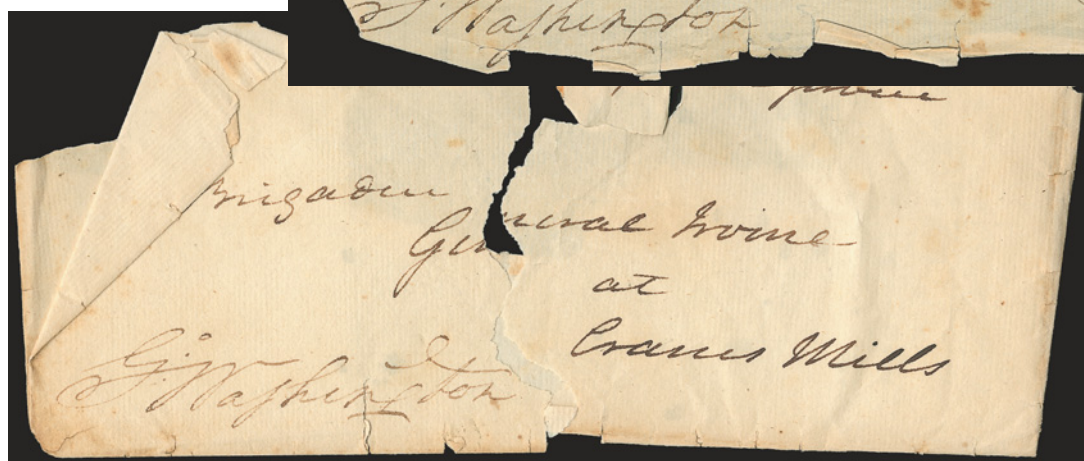 Washington
Brigadier
General Irvine
at
Cranes Mills
G:Washington